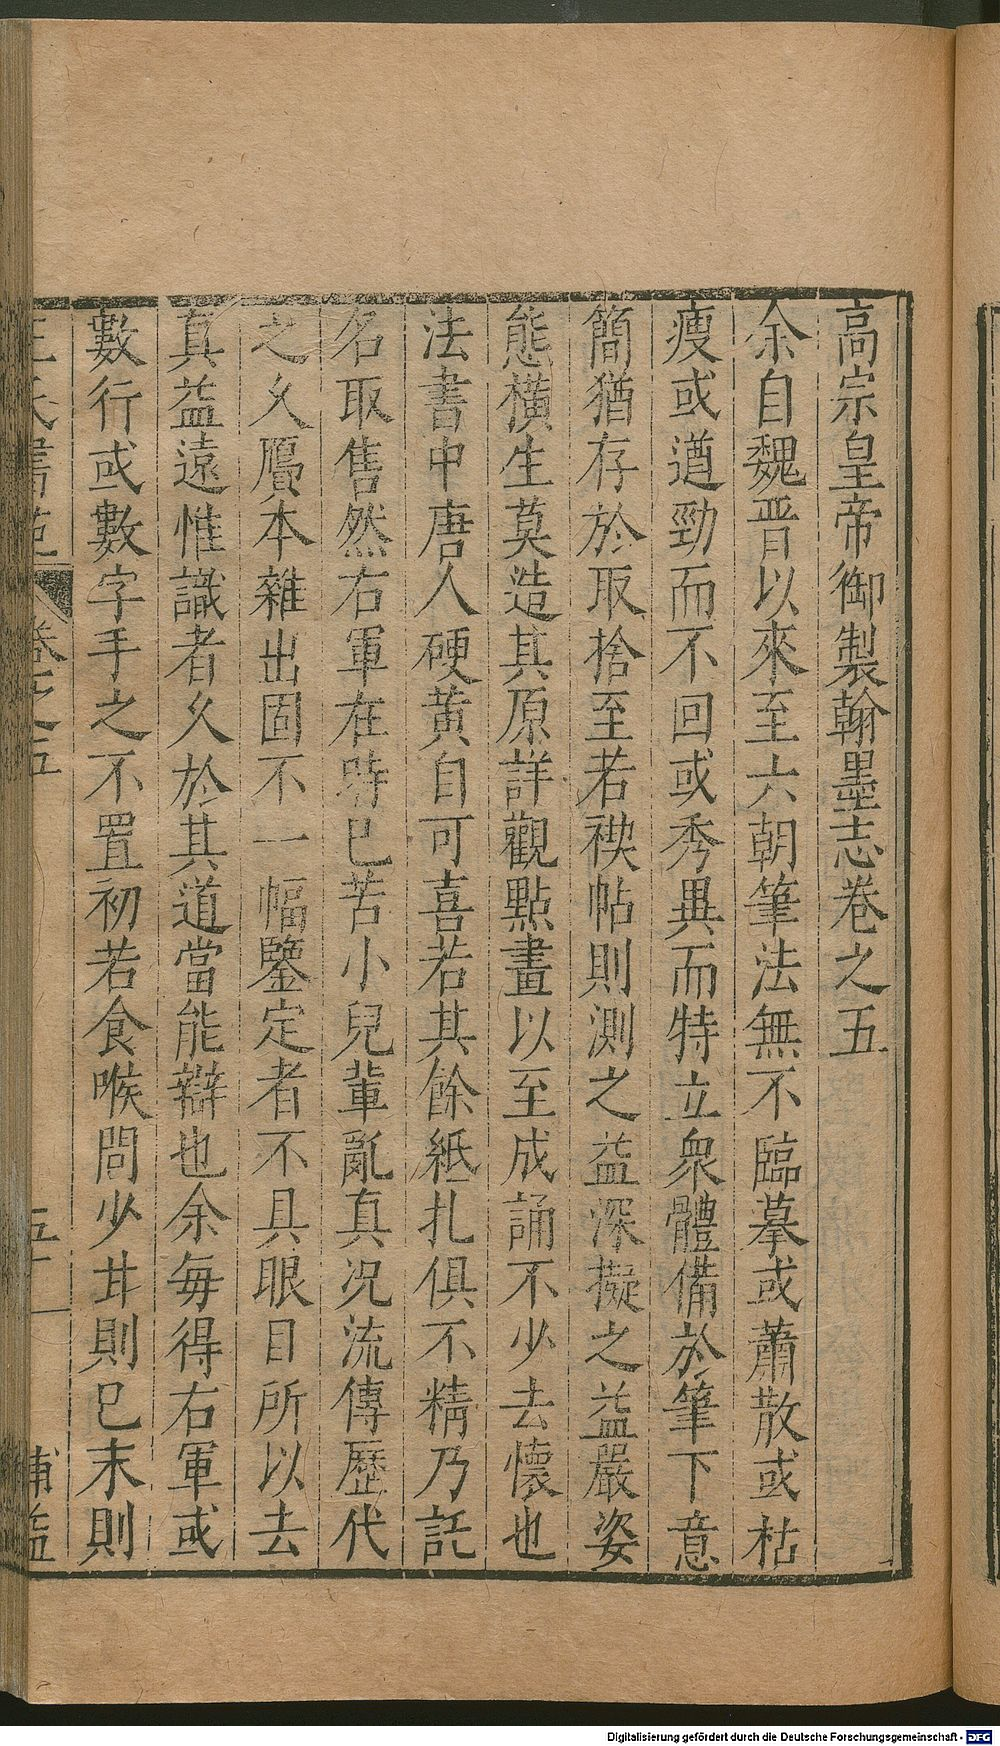 高宗皇帝御製翰墨志卷之五
余自魏晋以來至六朝筆法無不臨摹或蕭散或枯
瘦或遒勁而不回或秀異而特立衆體備於筆下意
簡猶存於取捨至若禊帖則測之益深擬之益嚴姿
態橫生莫造其原詳觀點畫以至成誦不少去懷也
法書中唐人硬黄自可喜若其餘紙扎俱不精乃託
名取售然右軍在時已苦小兒輩亂真况流傳歷代
之久贋本雜出固不一幅鑒定者不具眼目所以去
真益遠惟識者久於其道當能辯也余每得右軍或
數行或數字手之不置初若食喉間少甘則已末則
王氏書苑 卷之五 五十一 補益
Digitalisierung gefördert durch die Deutsche Forschungsgemeinschaft - DFG